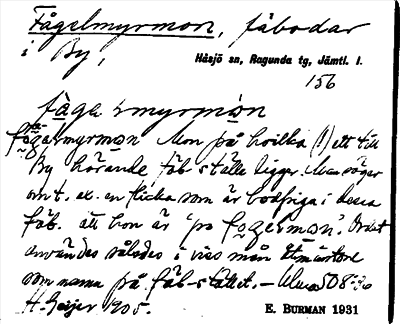 Fågelmyrmon, fäbodar
i By,
Håsjö sn, Ragunda tg, Jämtl. l.
156
fågermyrmon Mon på hvilka (!) ett till
By hörande fäbställe ligger. Man säger
om t. ex. en flicka som är bodpiga i dessa
fäb. att hon är "på
Ordet
användes således i viss mån
som namn på fäbstället. —
H. Geijer 1905.
E. BURMAN 1931